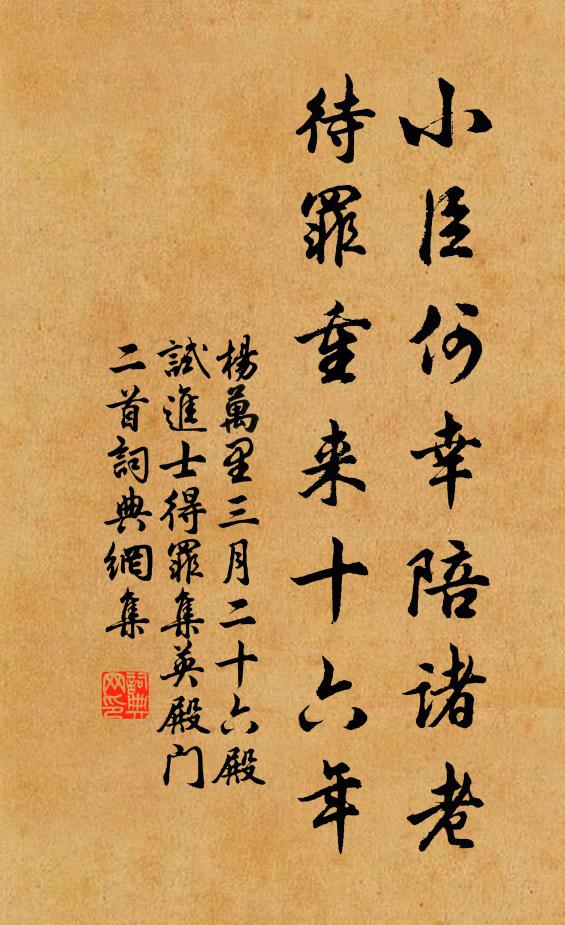 小臣何幸陪諸老
待罪重来十六年
楊萬里三月二十六殿
試進士得罪集英殿门
二首詞典網集
詞典网印